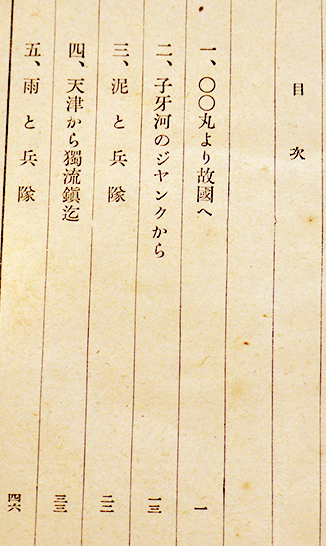 目次
一、〇〇丸より故國へ 一
二、子牙河のジヤンクから 一三
三、泥と兵隊 二二
四、天津から獨流鎭迄 三三
五、雨と兵隊 四六